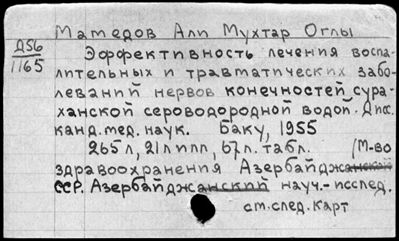 Маmедов Али Мухтар Оглы
Д56
1165
Эффективность лечения воспа-
лительных и травматических забо-
леваний нервов конечностей сура-
ханской сероводородной водой. Дисс.
канд. мед. наук. Баку, 1955
265 л, 21 л илл, 67 л. табл. /М-во
здравоохранения Азербайджанской
ССР. Азербайджанский науч.-исслед.
см. след. карт